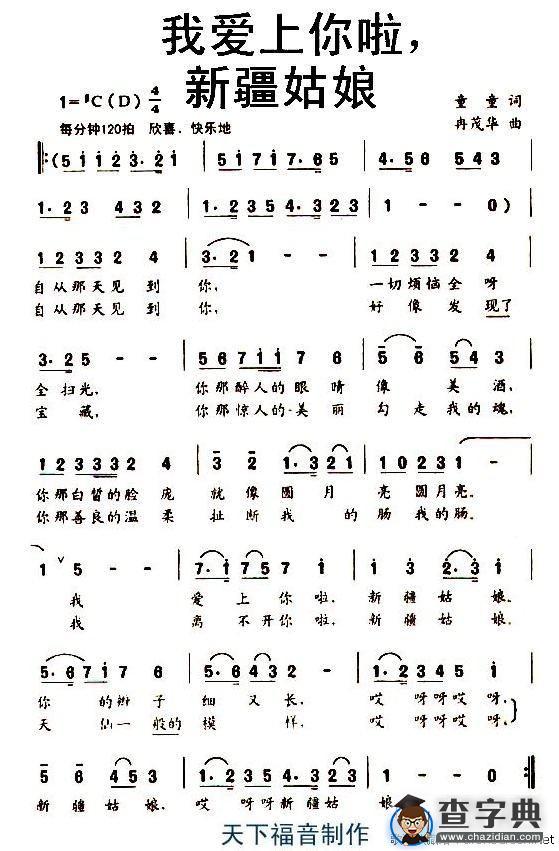 我爱上你啦，
新疆姑娘
1=♯C（D）4/4
童童 词
每分钟120拍 欣喜、快乐地
冉茂华 曲
𝄆（5 1 1 2 3·2 1 | 5 1 7 1 7·6 5 |
1·2 3 4 3 2 | 1·2 3 5 4·3 2 3 | 1 - - 0）|
1 2 3 3 3 2 4 | 3·2 1 - - | 1 2 3 3 2 4 |
自从那天见到 你， 一切烦恼全呀
自从那天见到 你， 好像发现了
3·2 5 - - | 5 6 7 1 1 7 6 | 5 6 5 4 3 |
全扫光， 你那醉人的眼睛像 美酒，
宝藏， 你那惊人的美丽勾走我的魂，
1 2 3 3 3 2 4 | 3 2 1·3 2 1 | 1 0 2 3 1 - |
你那白皙的脸庞 就像圆月 亮圆月亮。
你那善良的温柔 扯断我 的肠我的肠。
1 5 - - | 7·1 7 5 7 1 | 1 3 2·3 1 |
我 爱上你啦，新疆姑娘，
我 离不开你啦，新疆姑娘，
5·6 7 1 7 6 | 5·4 5 4 3 | 1·2 3 4 5 1 |
你的辫子细又长，哎呀呀哎呀呀，
天仙一般的模样，哎呀呀哎呀呀，
5 6 4 5 3 | 1·2 3 4 3 2 | 1 - - 0 𝄇
新疆姑娘，哎呀呀新疆姑娘。
天下福音制作
查字典
www.chazidian.com